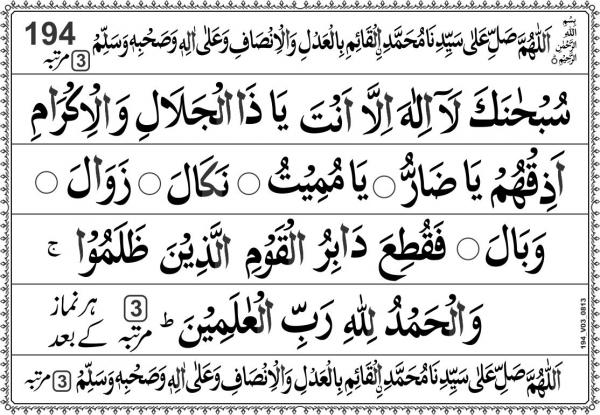 194
بِسْمِ اللّٰهِ الرَّحْمٰنِ الرَّحِيْمِ
اَللّٰهُمَّ صَلِّ عَلٰى سَيِّدِنَا مُحَمَّدِ ۣالْقَائِمِ بِالْعَدْلِ وَالْاِنْصَافِ وَعَلٰى اٰلِهٖ وَصَحْبِهٖ وَسَلِّمْ 3 مرتبہ
سُبْحٰنَكَ لَاۤ اِلٰهَ اِلَّا اَنْتَ يَا ذَا الْجَلَالِ وَالْاِكْرَامِ
اَذِقْهُمْ يَا ضَارُّ ○ يَا مُمِيْتُ ○ نَكَالَ ○ زَوَالَ ○
وَبَالَ ○ فَقُطِعَ دَابِرُ الْقَوْمِ الَّذِيْنَ ظَلَمُوْا ج
وَالْحَمْدُ لِلّٰهِ رَبِّ الْعٰلَمِيْنَ ط 3 مرتبہ ہر نماز کے بعد
اَللّٰهُمَّ صَلِّ عَلٰى سَيِّدِنَا مُحَمَّدِ ۣالْقَائِمِ بِالْعَدْلِ وَالْاِنْصَافِ وَعَلٰى اٰلِهٖ وَصَحْبِهٖ وَسَلِّمْ 3 مرتبہ
194_V03_0813